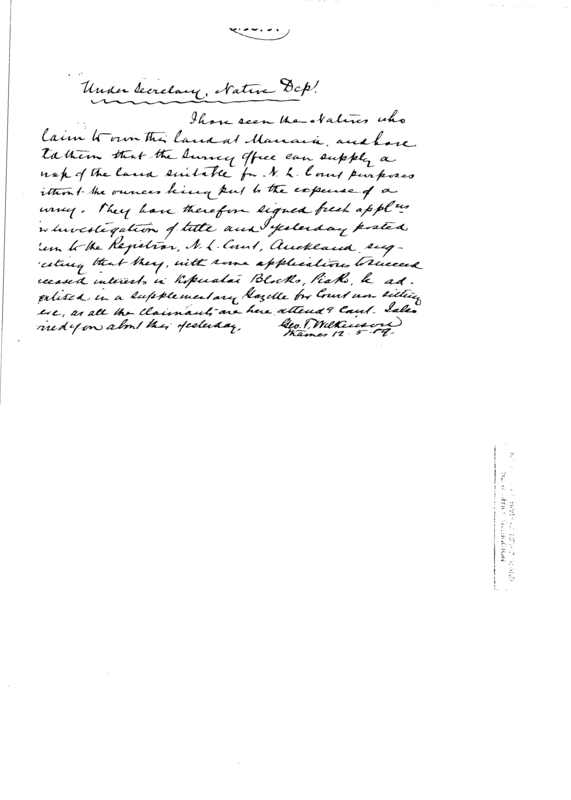 Under Secretary, Native Dept.
I have seen the Natives who
laim to own this land at Manaia, and have
told them that the Survey Office can supply a
map of the land suitable for N. L. Court purposes
ithout the owners being put to the expense of a
urvey. They have therefore signed fresh applns
investigation of title and I yesterday posted
em to the Registrar, N. L. Court, Auckland, sug-
esting that they, with some applications to succeed
eceased interests in Blocks, Piako, be ad-
in a Supplementary Gazette for Court now sitting
ere, as all the Claimants are here attendg Court. I also
ired you about this yesterday.
Geo. T. Wilkinson
Thames 12.5.89.